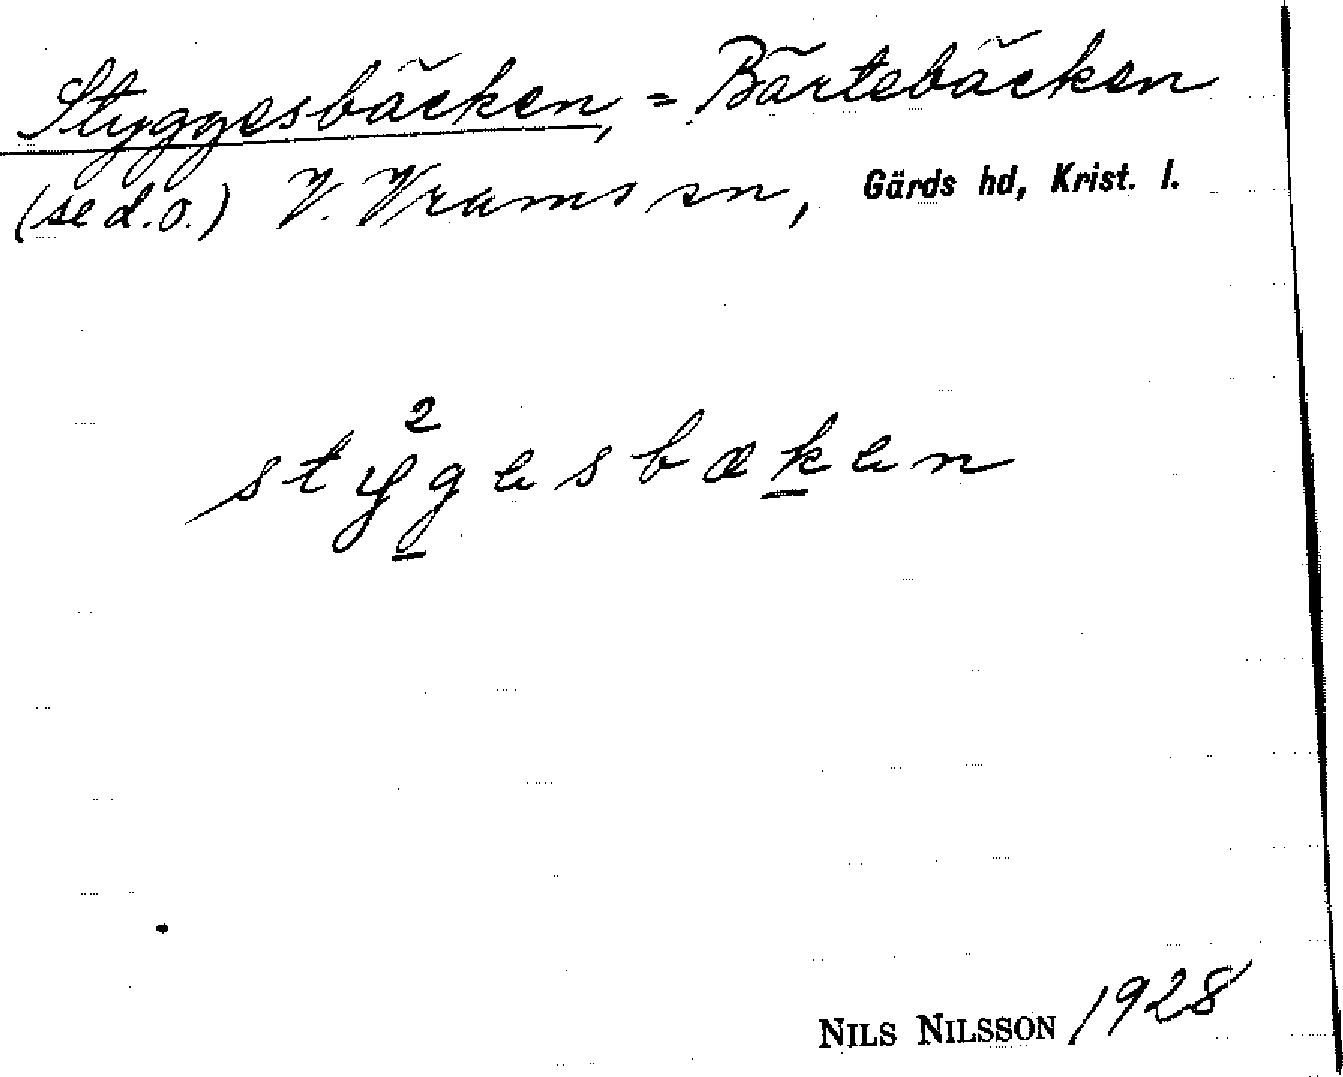 Styggesbäcken, = Bärtebäcken
(se d.o.) V. Vrams sn, Gärds hd, Krist. l.
2
stygesbæken
NILS NILSSON 1928